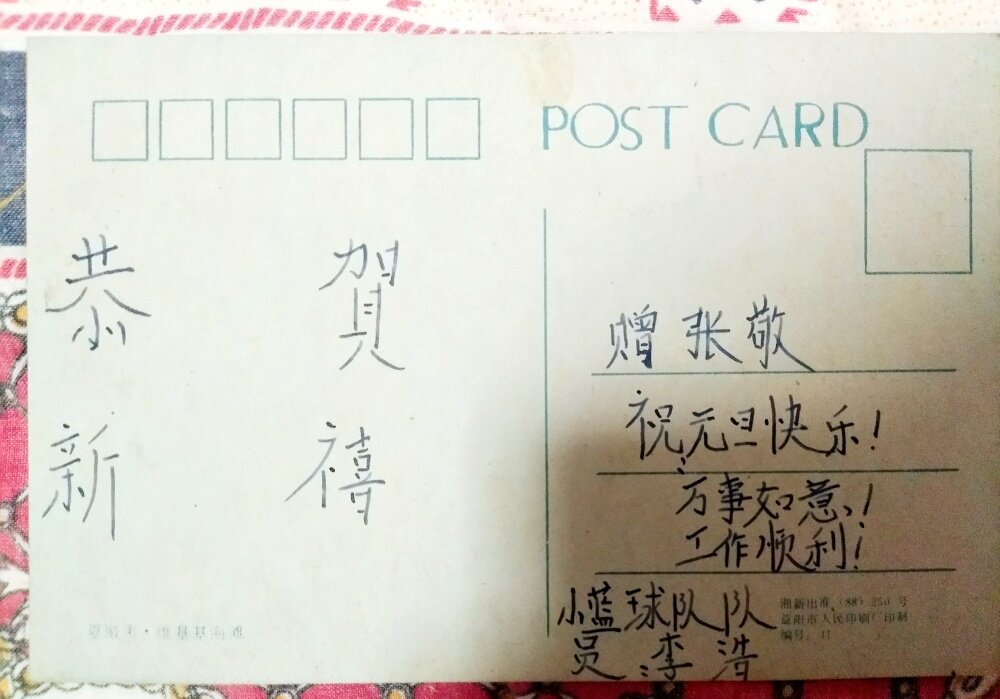 POST CARD
恭 賀
新 禧
赠 张敬
祝:元旦快乐!
万事如意!
工作顺利!
小蓝球队队
员:李浩
湘新出准(88)250号
益阳市人民印刷厂印制
编号:11